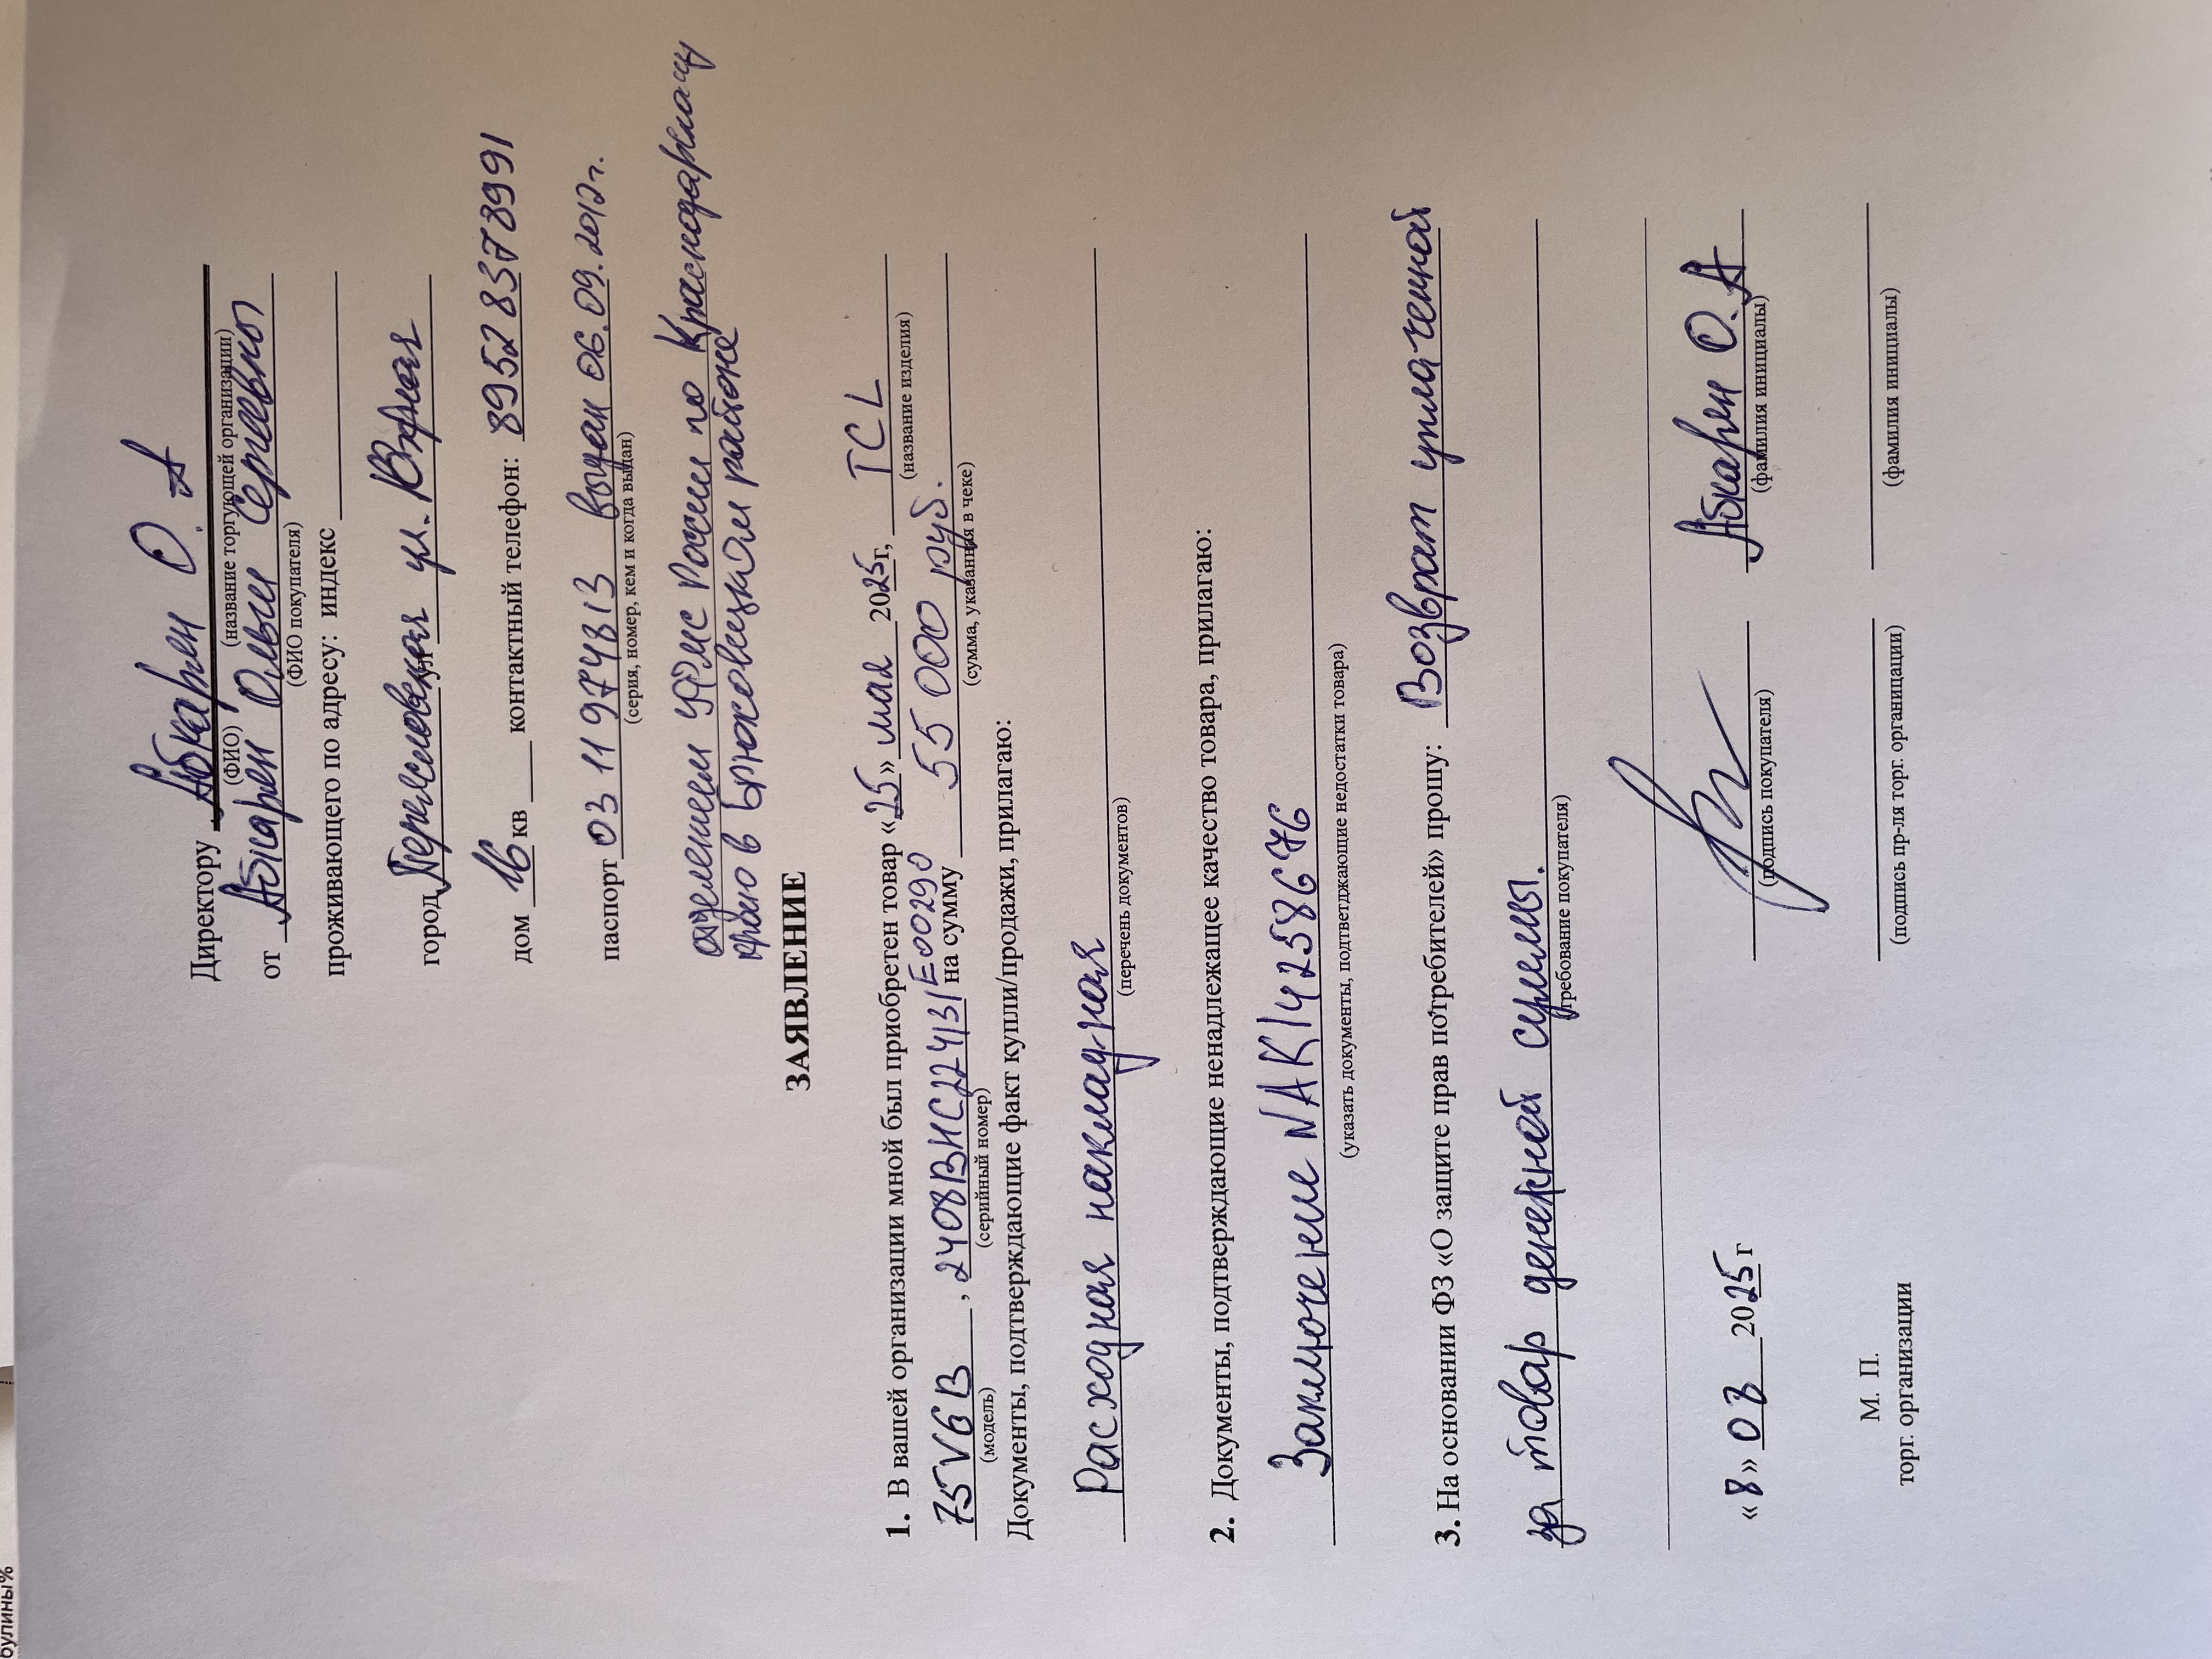 Директору Абкарян О. А
(ФИО) (название торгующей организации)
от Абкарян Ольги Сергеевны
(ФИО покупателя)
проживающего по адресу: индекс
город Переясловская ул. Южная
дом 16 кв контактный телефон: 8952 8378991
паспорт 03 11 974813 выдан 06.09.2012г.
(серия, номер, кем и когда выдан)
отделением УФМС России по Краснодарскому
краю в Брюховецком районе
ЗАЯВЛЕНИЕ
1. В вашей организации мной был приобретен товар «25» мая 2025г, TCL
(название изделия)
75V6B, 2408BHC224131E00290 на сумму 55 000 руб.
(модель) (серийный номер) (сумма, указанная в чеке)
Документы, подтверждающие факт купли/продажи, прилагаю:
Расходная накладная
(перечень документов)
2. Документы, подтверждающие ненадлежащее качество товара, прилагаю:
Заключение NAK14258676
(указать документы, подтветджающие недостатки товара)
3. На основании ФЗ «О защите прав потребителей» прошу: Возврат уплаченной
за товар денежной суммы.
требование покупателя)
«8» 08 2025г
Абкарян О. А
(подпись покупателя) (фамилия инициалы)
М. П.
торг. организации
(подпись пр-ля торг. орагницации) (фамилия инициалы)
булины%